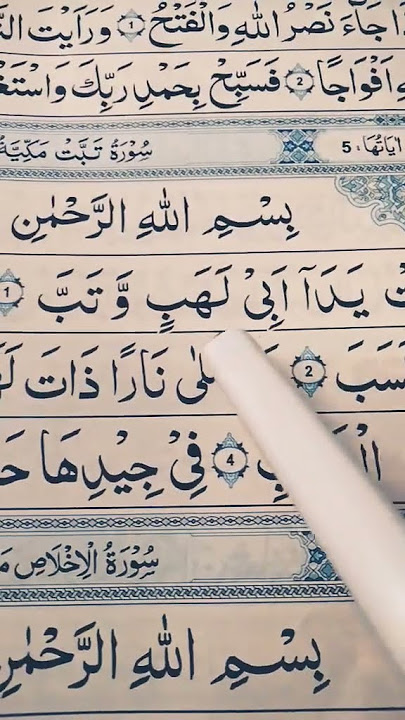 جَآءَ نَصْرُ اللّٰهِ وَالْفَتْحُ ۝1 وَرَاَيْتَ
اَفْوَاجًا ۝2 فَسَبِّحْ بِحَمْدِ رَبِّكَ
اٰيَاتُهَا : 5 سُوْرَةُ تَبَّتْ مَكِّيَّةٌ
بِسْمِ اللّٰهِ الرَّحْمٰنِ
يَدَآ اَبِيْ لَهَبٍ وَّ تَبَّ 1
2 نَارًا ذَاتَ
4 فِيْ جِيْدِهَا
سُوْرَةُ الْاِخْلَاصِ
بِسْمِ اللّٰهِ الرَّحْمٰنِ